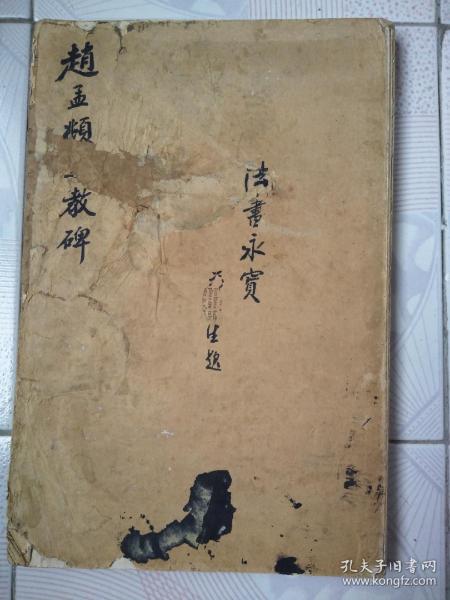 趙孟頫 教碑
法書永寶
生題
孔夫子旧书网
www.kongfz.com